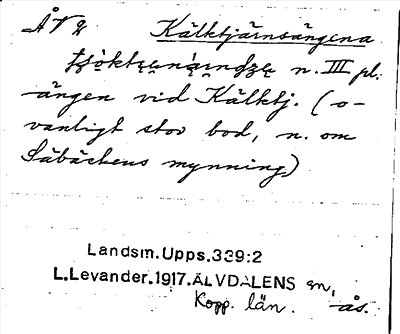 ÅVg Kälktjärnsängena
n. III pl.
ängen vid Kälktj. (o-
vanligt stor bod, n. om
Säbäckens mynning)
Landsm.Upps.339:2
L.Levander.1917.ÄLVDALENS sn,
Kopp. län. ås.